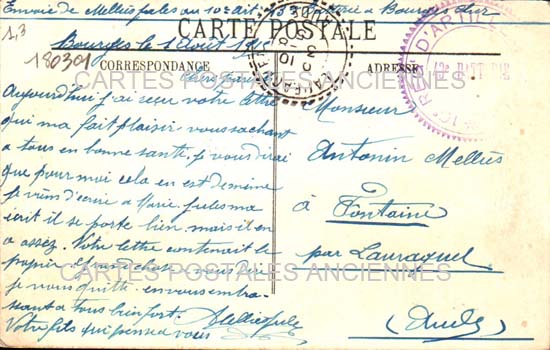 Envoie de Melliés Jules au 1er art 13e Batterie à Bourges Cher
CARTE POSTALE
Bourges le 1 Août
130301
CORRESPONDANCE
ADRESSE
CARTES POSTALES ANCIENNES
Chers parents
Aujourd'hui j'ai reçu votre lettre
qui ma fait plaisir vous sachant
a tous en bonne santé. je vous dirai
que pour moi cela en est de même
je viens d'écrire a Marie. jules ma
écrit il se porte bien mais il en
a assez. Votre lettre contenait le
papier
CARTES POSTALES ANCIENNES
je vous quitte en vous embra-
ssant a tous bien fort.
Votre fils qui pense a vous
Monsieur
Antonin Melliés
à Fontaine
par Lauraguel
(Aude)
D'ARTILLERIE